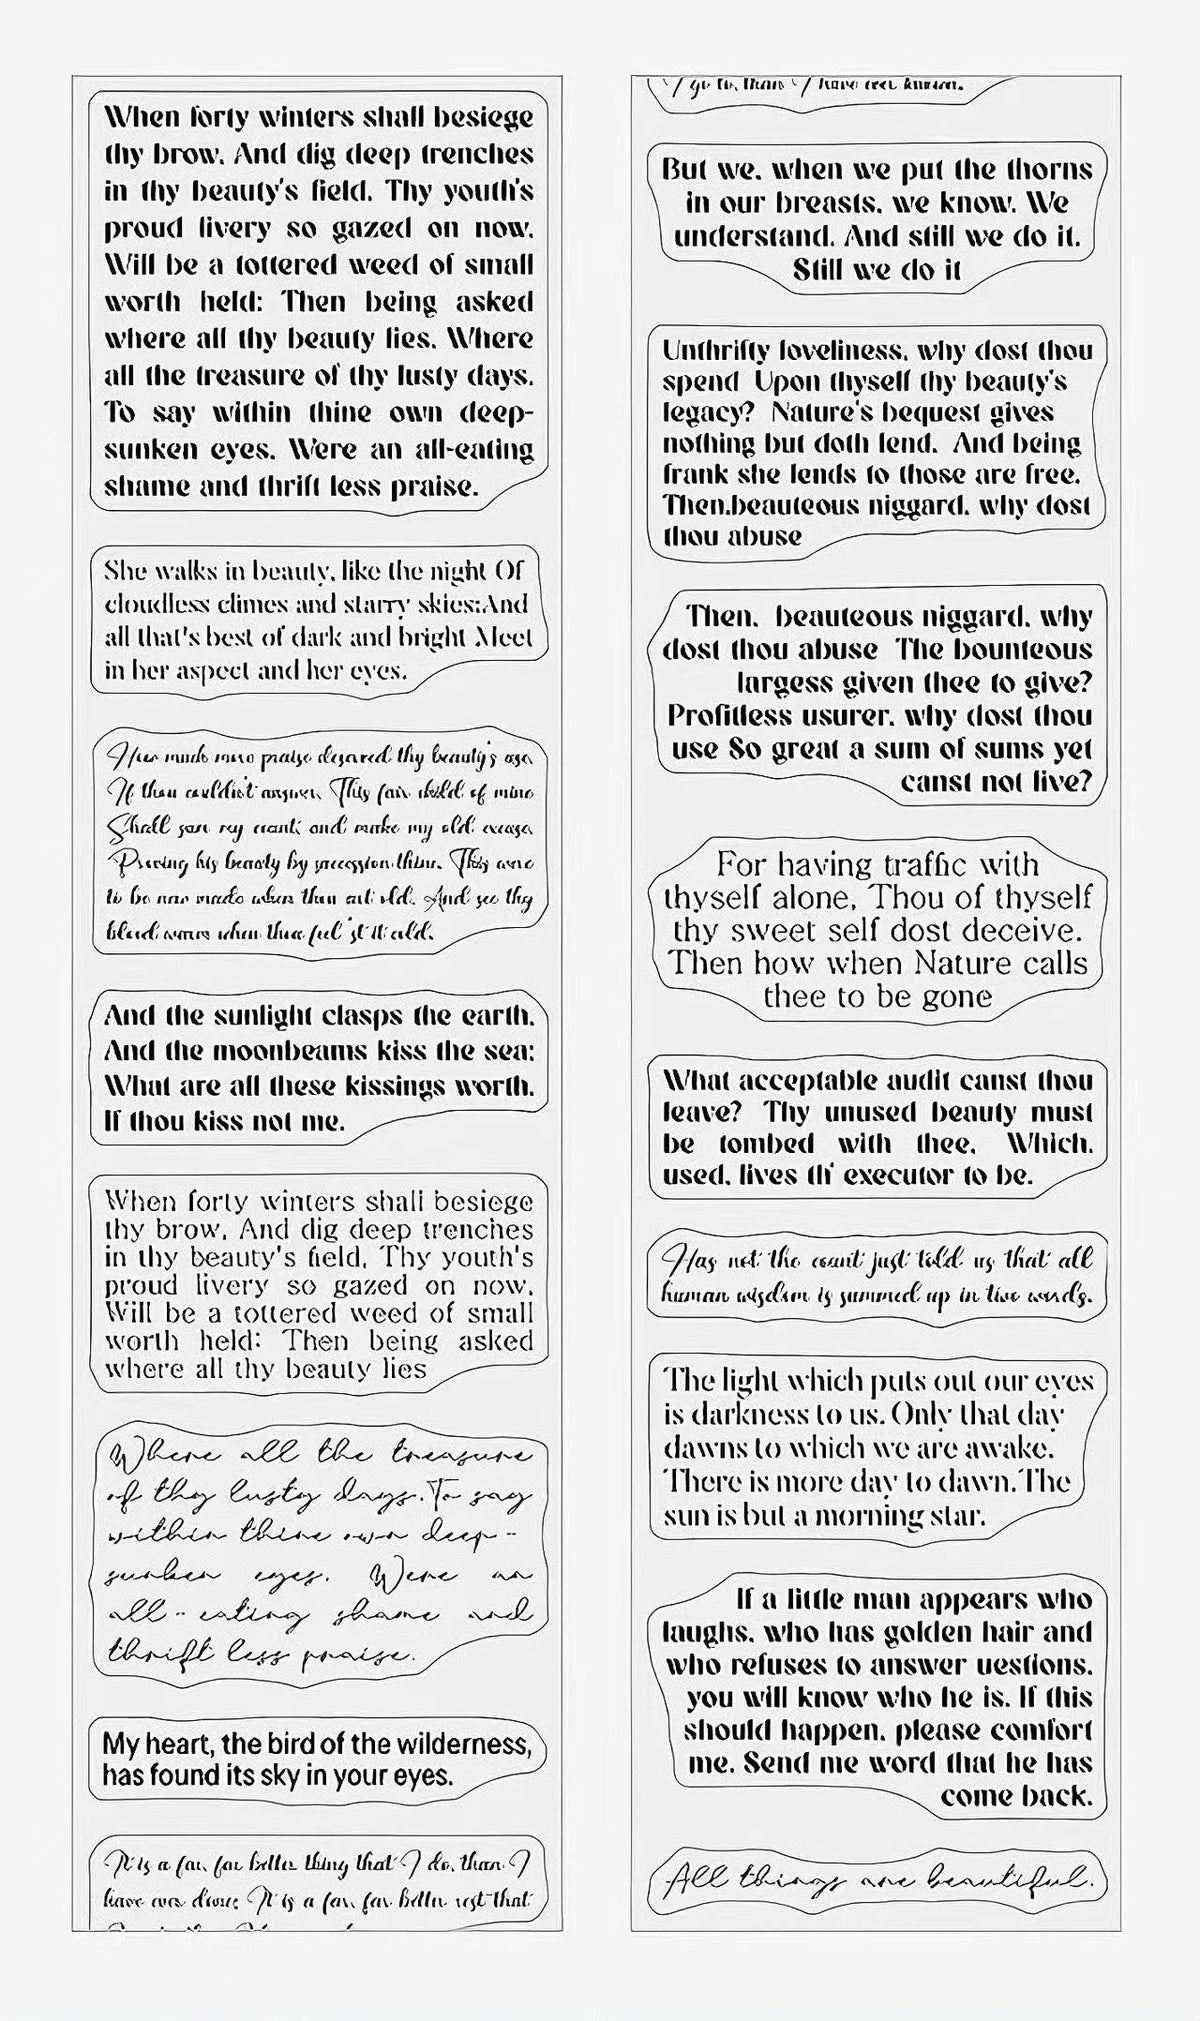 When forty winters shall besiege
thy brow, And dig deep trenches
in thy beauty's field, Thy youth's
proud livery so gazed on now,
Will be a tottered weed of small
worth held: Then being asked
where all thy beauty lies, Where
all the treasure of thy lusty days,
To say within thine own deep-
sunken eyes, Were an all-eating
shame and thrift less praise.
She walks in beauty, like the night Of
cloudless climes and starry skies;And
all that's best of dark and bright Meet
in her aspect and her eyes.
How much more praise deserved thy beauty's use,
If thou couldst answer, This fair child of mine
Shall sum my count, and make my old excuse,
Proving his beauty by succession thine. This were
to be new made when thou art old, And see thy
blood warm when thou feel'st it cold.
And the sunlight clasps the earth,
And the moonbeams kiss the sea;
What are all these kissings worth,
If thou kiss not me.
When forty winters shall besiege
thy brow, And dig deep trenches
in thy beauty's field, Thy youth's
proud livery so gazed on now,
Will be a tottered weed of small
worth held: Then being asked
where all thy beauty lies
Where all the treasure
of thy lusty days,To say
within thine own deep-
sunken eyes, Were an
all-eating shame and
thrift less praise.
My heart, the bird of the wilderness,
has found its sky in your eyes.
It is a far, far better thing that I do, than I
have ever done; It is a far, far better rest that
I go to, than I have ever known.
But we, when we put the thorns
in our breasts, we know. We
understand. And still we do it.
Still we do it
Unthrifty loveliness, why dost thou
spend Upon thyself thy beauty's
legacy? Nature's bequest gives
nothing but doth lend, And being
frank she lends to those are free.
Then,beauteous niggard, why dost
thou abuse
Then, beauteous niggard, why
dost thou abuse The bounteous
largess given thee to give?
Profitless usurer, why dost thou
use So great a sum of sums yet
canst not live?
For having traffic with
thyself alone, Thou of thyself
thy sweet self dost deceive.
Then how when Nature calls
thee to be gone
What acceptable audit canst thou
leave? Thy unused beauty must
be tombed with thee, Which,
used, lives th' executor to be.
Has not the count just told us that all
human wisdom is summed up in two words.
The light which puts out our eyes
is darkness to us. Only that day
dawns to which we are awake.
There is more day to dawn.The
sun is but a morning star.
If a little man appears who
laughs, who has golden hair and
who refuses to answer uestions,
you will know who he is. If this
should happen, please comfort
me. Send me word that he has
come back.
All things are beautiful.